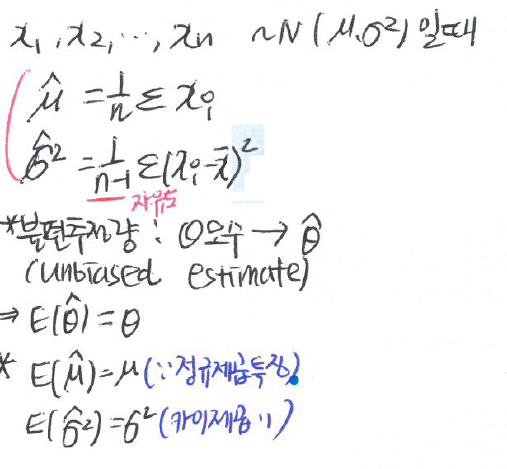 x₁, x₂, ⋯, xn ~N(μ, σ²) 일때
μ̂ = 1/n Σ xᵢ
σ̂² = 1/(n-1) Σ(xᵢ-x̄)²
자유도
*불편추정량 : θ모수 → θ̂
(unbiased estimate)
⇒ E(θ̂) = θ
* E(μ̂) = μ (∵정규제곱특징)
E(σ̂²) = σ² (카이제곱 〃)